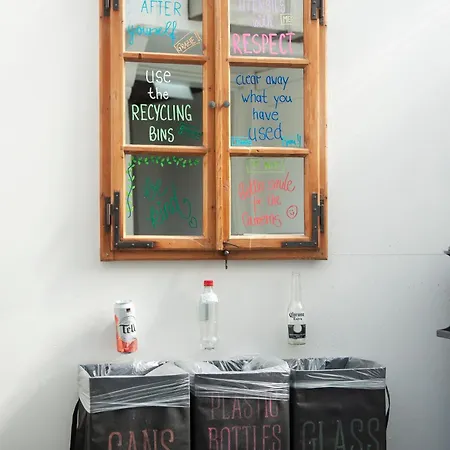 AFTER
yourself
RESPECT
use
the
RECYCLING
BINS
clear away
what you
have
used
be
kind
smile
for the
Tell
Corona
Extra
CANS
PLASTIC
BOTTLES
GLASS